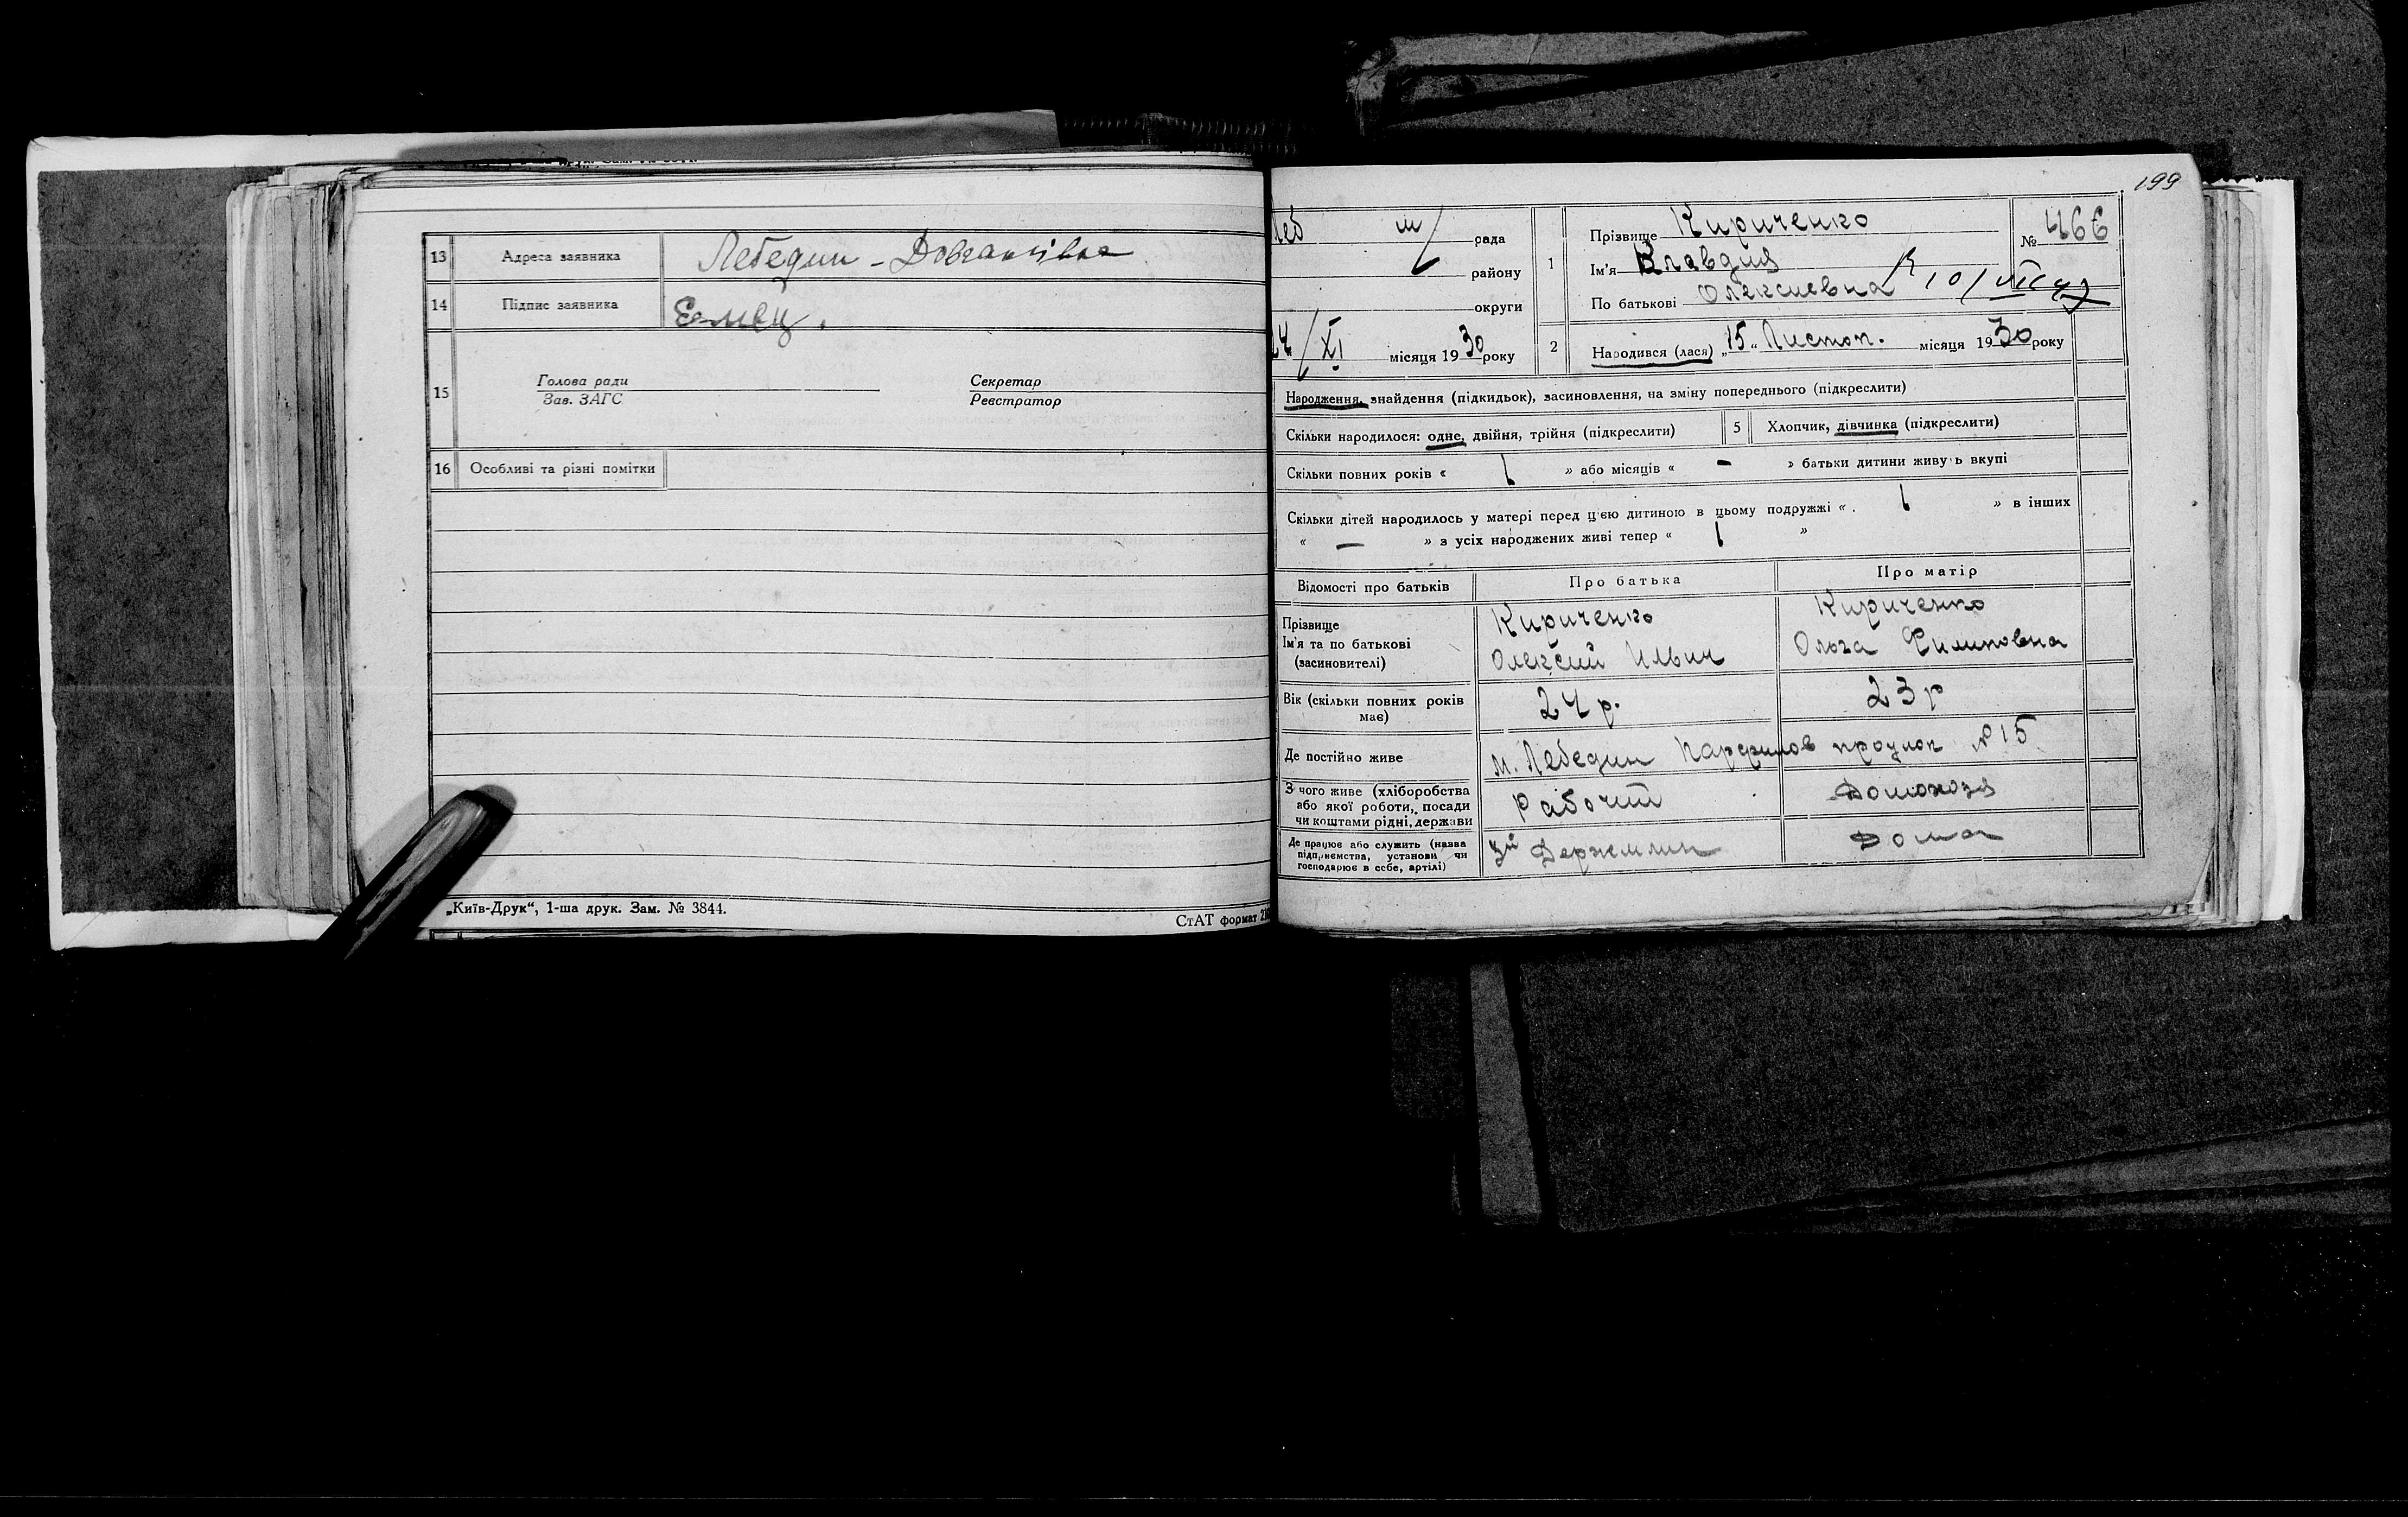 13 Адреса заявника Лебедин - Довгалівка
14 Підпис заявника Емец.
15 Голова ради Секретар
Зав. ЗАГС Реєстратор
16 Особливі та різні помітки
„Київ-Друк“, 1-ша друк. Зам. № 3844.
СтАТ формат
199
Леб м рада
району
округи
24/XI місяця 1930 року
1 Прізвище Кириченко № 466
Ім'я Клавдия
По батькові Олексиевна
2 Народився (лася) „15“ Листоп. місяця 1930 року
Народження, знайдення (підкидьок), засиновлення, на зміну попереднього (підкреслити)
Скільки народилося: одне, двійня, трійня (підкреслити) 5 Хлопчик, дівчинка (підкреслити)
Скільки повних років « 1 » або місяців « – » батьки дитини живуть вкупі
Скільки дітей народилось у матері перед цією дитиною в цьому подружжі « 1 » в інших
« — » з усіх народжених живі тепер « 1 »
Відомості про батьків Про батька Про матір
Прізвище Кириченко Кириченко
Ім'я та по батькові Олексий Ильич Ольга Филиповна
(засиновителі)
Вік (скільки повних років має) 24 р. 23 р
Де постійно живе м. Лебедин проулок №15
З чого живе (хліборобства Рабочий Домохозя
або якої роботи, посади
чи коштами рідні, держави
Де працює або служить (назва Держмлин Дома
підприємства, установи чи
господарює в себе, артілі)